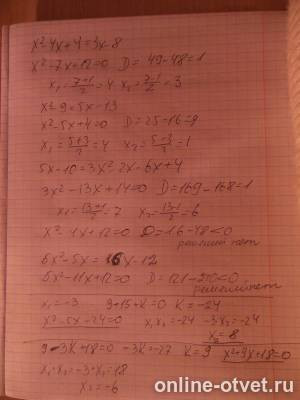 x²-4x+4=3x-8
x²-7x+12=0 D=49-48=1
x₁=(7+1)/2=4 x₂=(7-1)/2=3
x²-9=5x-13
x²-5x+4=0 D=25-16=9
x₁=(5+3)/2=4 x₂=(5-3)/2=1
5x-10=3x²-2x-6x+4
3x²-13x+14=0 D=169-168=1
x₁=(13+1)/2=7 x₂=(13-1)/2=6
x²-4x+12=0 D=16-48<0
решений нет
6x²-5x=6x-12
6x²-11x+12=0 D=121-270<0
решений нет
x₁=-3 9+15+K=0 K=-24
x²-5x-24=0 x₁x₂=-24 -3x₂=-24
x₂=8
9-3K+18=0 -3K=-27 K=9 x²+9x+18=0
x₁·x₂=-3·x₂=18
x₂=-6
online-otvet.ru